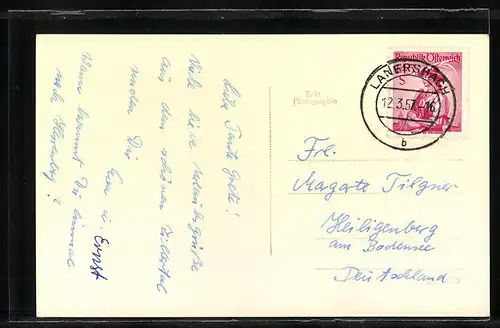 Liebe Tante Grete!
Viele liebe Urlaubsgrüße
aus dem schönen Zillertal
senden Dir
Evi u. Ernst
Wann kommst Du einmal
nach ?
Echt
Photographie
Republik Österreich
LANERSBACH
12.3.57.-16
b
Frl.
Magarte Tilgner
Heiligenberg
am Bodensee
Deutschland